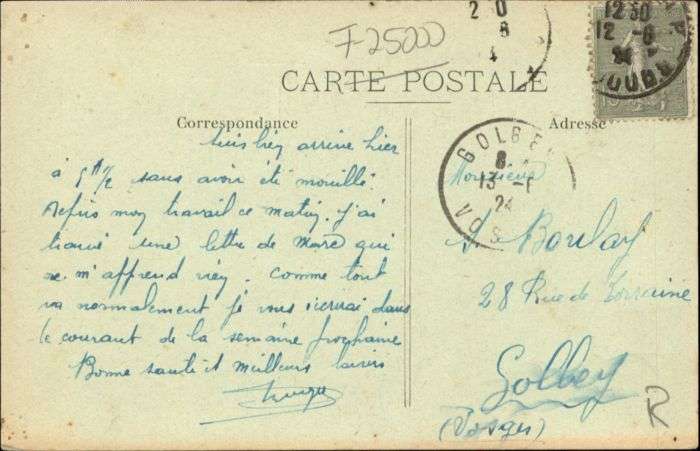 F-25000
CARTE POSTALE
Correspondance
Adresse
Suis bien arrivé hier
à 9h 1/2 sans avoir été mouillé.
Repris mon travail ce matin. J'ai
trouvé une lettre de Marc qui
ne m'apprend rien. Comme tout
va normalement je vous écrirai dans
le courant de la semaine prochaine
Bonne santé et meilleurs baisers
Monsieur
A. Boulay
28 Rue de Lorraine
Golbey
(Vosges)
R
GOLBEY
8
13 -
24
VOS
12 30
12 - 8
24